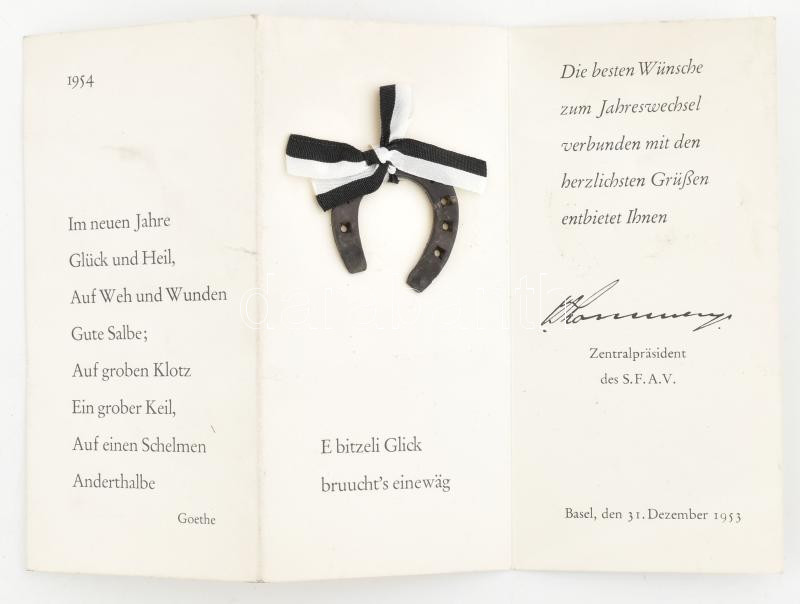 1954
Im neuen Jahre
Glück und Heil,
Auf Weh und Wunden
Gute Salbe;
Auf groben Klotz
Ein grober Keil,
Auf einen Schelmen
Anderthalbe
Goethe
E bitzeli Glick
bruucht's einewäg
Die besten Wünsche
zum Jahreswechsel
verbunden mit den
herzlichsten Grüßen
entbietet Ihnen
Zentralpräsident
des S.F.A.V.
Basel, den 31. Dezember 1953